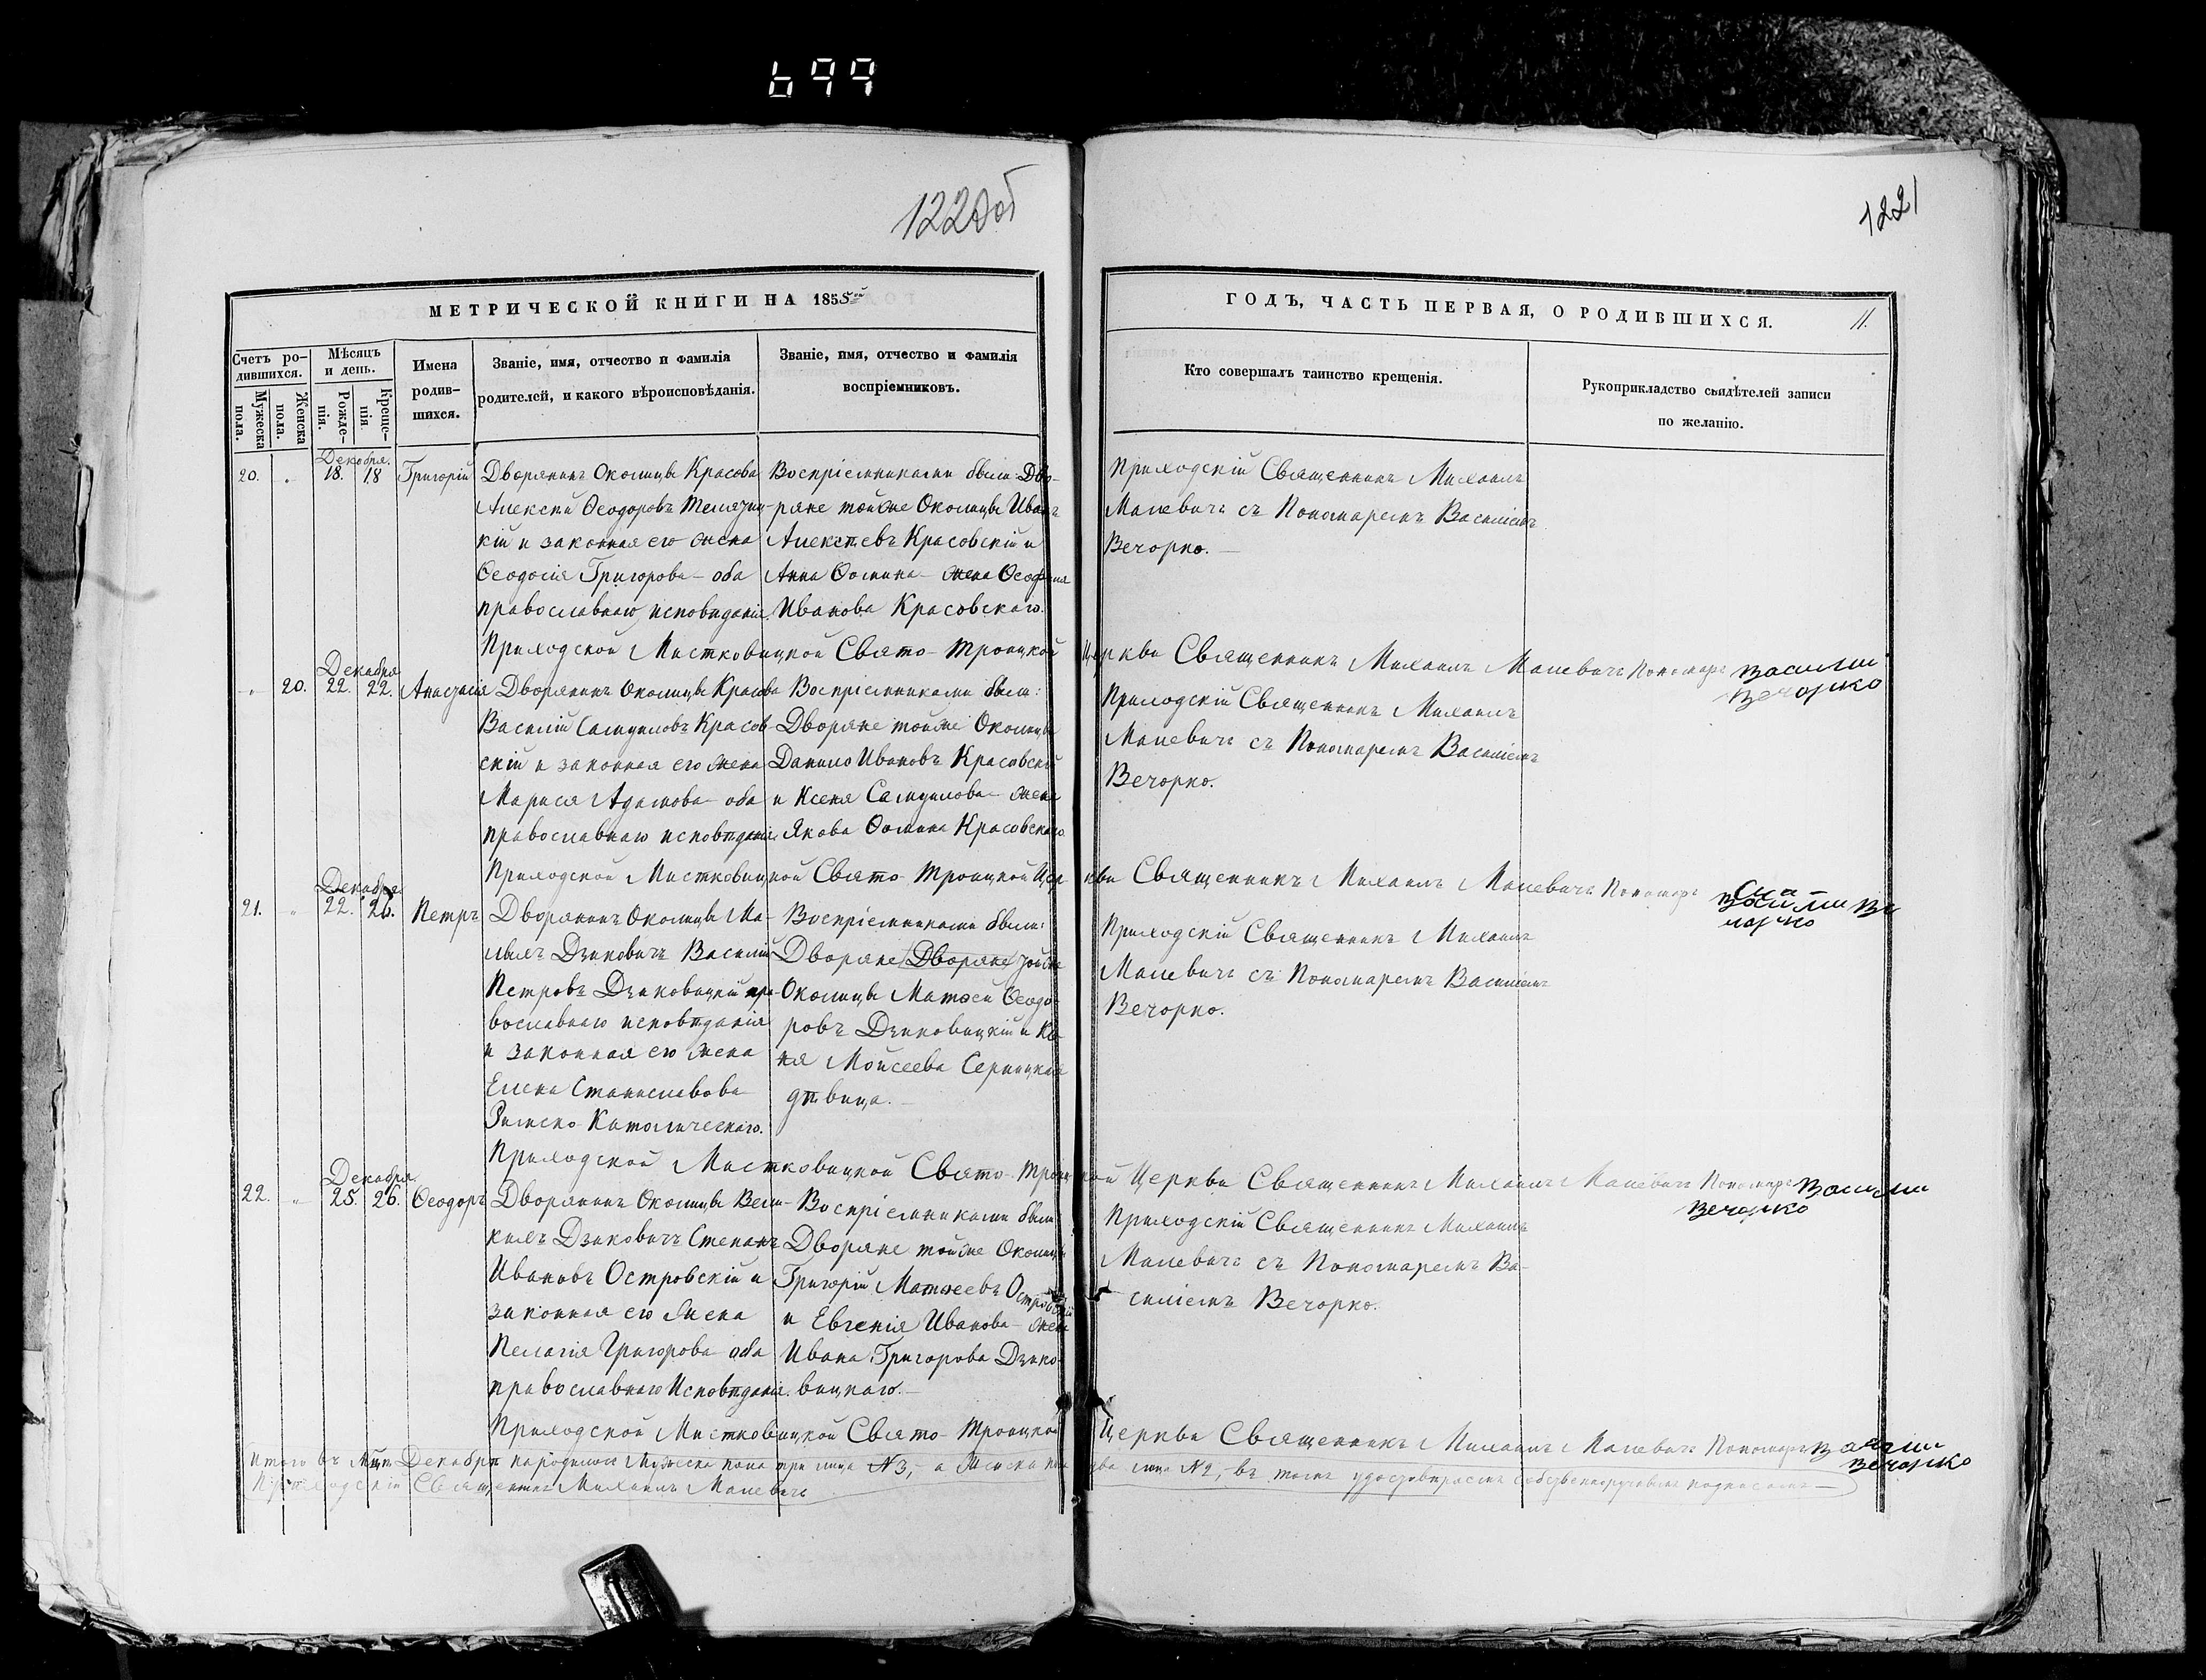 699
1220об
1221
МЕТРИЧЕСКОЙ КНИГИ НА 1858й
ГОДЪ, ЧАСТЬ ПЕРВАЯ, О РОДИВШИХСЯ. 11.
Счетъ ро-
дившихся.
Мужеска
пола.
Женска
пола.
Мѣсяцъ
и день.
Рожде-
нія.
Креще-
нія
Имена
родив-
шихся.
Званіе, имя, отчество и фамилія
родителей, и какого вѣроисповѣданія.
Званіе, имя, отчество и фамилія
воспріемниковъ.
Кто совершалъ таинство крещенія.
Рукоприкладство свидѣтелей записи
по желанію.
20.
Декабря.
18. 18
Григорій
Дворянинъ Околицы Красова
Алексѣй Ѳеодоровъ
кій и законная его жена
Ѳеодосія Григорова - оба
православнаго исповѣданія.
Воспріемниками были: Дво-
ряне тойже Околицы Иванъ
Алексѣевъ Красовскій и
Анна Ѳомина - жена
Иванова Красовскаго.
Приходскій Священникъ Михаилъ
Малевичъ съ Пономаремъ Василіемъ
Вечорко. -
Приходской Мистковицкой Свято-Троицкой Церкви Священникъ Михаилъ Малевичъ Пономарь Василій
Вечорко
20.
Декабря
22. 22.
Анастасія
Дворянинъ Околицы Красова
Василій Самуиловъ Красов-
скій и законная его жена
Марися Адамова - оба
православнаго исповѣданія.
Воспріемниками были:
Дворяне тойже Околицы
Данило Ивановъ Красовскій
и Ксеня Самуилова - жена
Якова Ѳомина Красовскаго.
Приходскій Священникъ Михаилъ
Малевичъ съ Пономаремъ Василіемъ
Вечорко.
Приходской Мистковицкой Свято-Троицкой Церкви Священникъ Михаилъ Малевичъ Пономарь
Василій Ве
чорко
21.
Декабря
22. 26.
Петръ
Дворянинъ Околицы Ма-
лыхъ Дзиковичъ Василій
Петровъ Дзиковицкій пра-
вославнаго исповѣданія
и законная его жена
Елена Станиславова
Римско-Католическаго.
Воспріемниками были:
Дворяне Дворяне тойже
Околицы Матѳей Ѳеодо-
ровъ Дзиковицкій и
ня Моисеева
дѣвица. -
Приходскій Священникъ Михаилъ
Малевичъ съ Пономаремъ Василіемъ
Вечорко.
Приходской Мистковицкой Свято-Троицкой Церкви Священникъ Михаилъ Малевичъ Пономарь Василій
Вечорко
22.
Декабря.
25. 26.
Ѳеодоръ
Дворянинъ Околицы Вели-
кихъ Дзиковичъ Степанъ
Ивановъ Островскій и
законная его жена
Пелагія Григорова оба
православнаго Исповѣданія.
Воспріемниками были
Дворяне тойже Околицы
Григорій Матѳеевъ Островскій
и Евгенія Иванова - жена
Ивана Григорова Дзико-
вицкаго. -
Приходскій Священникъ Михаилъ
Малевичъ съ Пономаремъ Ва-
силіемъ Вечорко.
Приходской Мистковицкой Свято-Троицкой Церкви Священникъ Михаилъ Малевичъ Пономарь Василій
Вечорко
Итого въ Мцѣ Декабрѣ народилось Мужеска пола три лица №3, а Женска пола два лица №2, - въ томъ удостовѣряемъ собственноручнымъ подписомъ -
Приходскій Священникъ Михаилъ Малевичъ